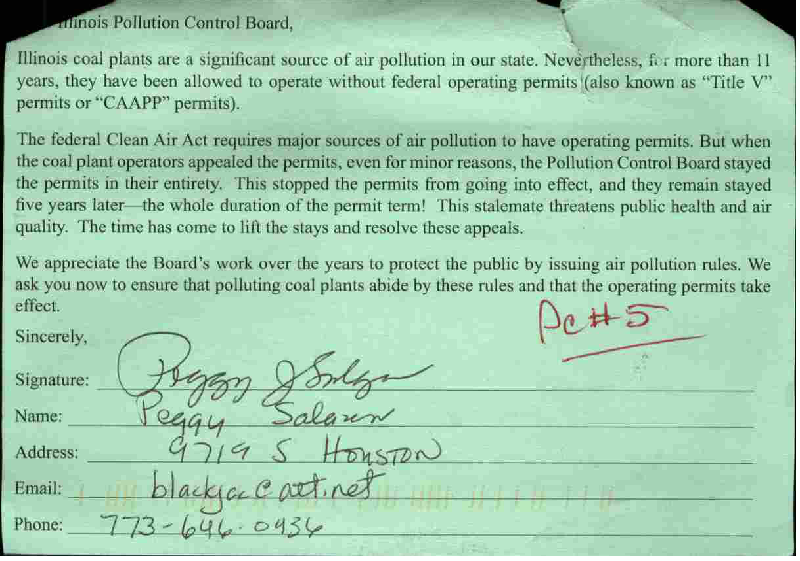 Illinois Pollution Control Board,
Illinois coal plants are a significant source of air pollution in our state. Nevertheless, for more than 11
years, they have been allowed to operate without federal operating permits (also known as “Title V”
permits or “CAAPP” permits).
The federal Clean Air Act requires major sources of air pollution to have operating permits. But when
the coal plant operators appealed the permits, even for minor reasons, the Pollution Control Board stayed
the permits in their entirety. This stopped the permits from going into effect, and they remain stayed
five years later—the whole duration of the permit term! This stalemate threatens public health and air
quality. The time has come to lift the stays and resolve these appeals.
We appreciate the Board’s work over the years to protect the public by issuing air pollution rules. We
ask you now to ensure that polluting coal plants abide by these rules and that the operating permits take
effect.
PC#5
Sincerely,
Signature: Peggy J
Name: Peggy
Address: 9719 S Houston
Email:
Phone: 773-646-0436